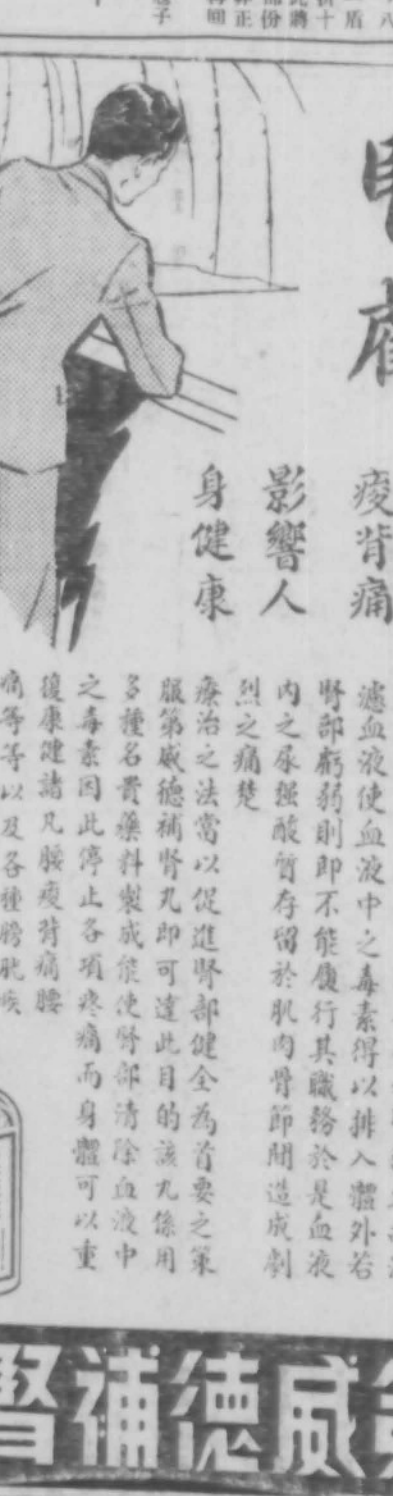 痠背痛
影響人
身健康
濾血液使血液中之毒素得以排入體外若
腎部虧弱則即不能履行其職務於是血液
內之尿强酸質存留於肌肉骨節間造成劇
烈之痛楚
療治之法當以促進腎部健全為首要之策
服第威德補腎丸即可達此目的該丸係用
多種名貴藥料製成能使腎部清除血液中
之毒素因此停止各項疼痛而身體可以重
復康健諸凡腰痠背痛腰
痛等等以及各種膀胱疾
威德補腎